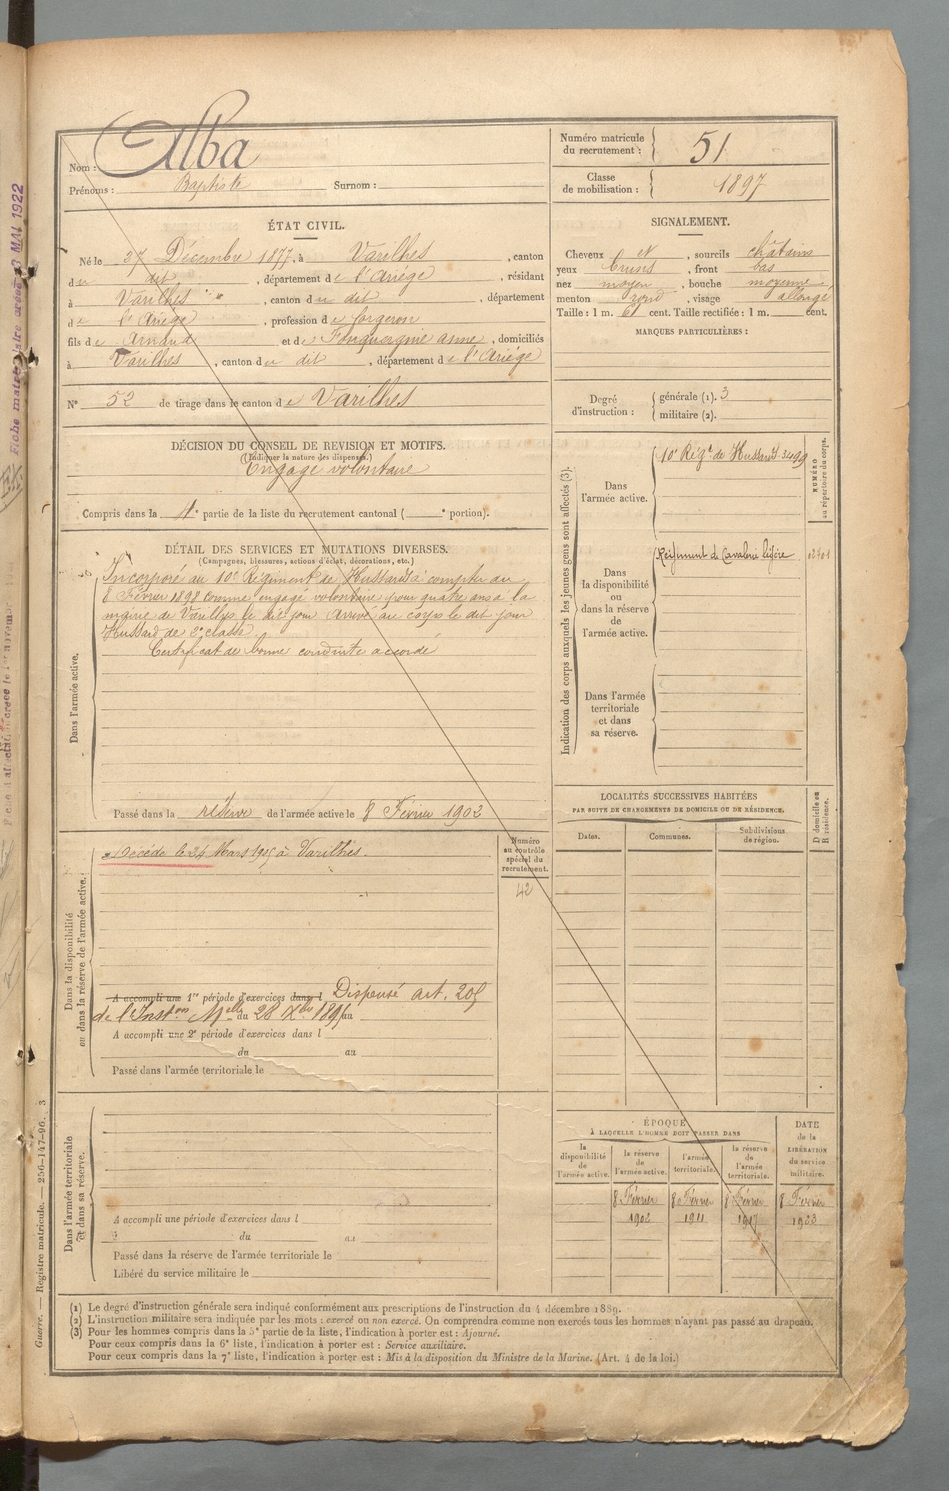 Nom : Alba
Prénoms : Baptiste Surnom :
Numéro matricule
du recrutement : 51
Classe
de mobilisation : 1897
ÉTAT CIVIL.
Né le 27 Décembre 1877, à Varilhes, canton
du dit, département de l'Ariège, résidant
à Varilhes, canton du dit, département
de l'Ariège, profession de forgeron
fils de Arnaud et de Anne, domiciliés
à Varilhes, canton du dit, département de l'Ariège
N° 52 de tirage dans le canton de Varilhes
SIGNALEMENT.
Cheveux et, sourcils châtains
yeux bruns, front bas
nez moyen, bouche moyenne,
menton rond, visage allongé
Taille : 1 m. 61 cent. Taille rectifiée : 1 m. cent.
MARQUES PARTICULIÈRES :
Degré
d'instruction :
générale (1). 3
militaire (2).
DÉCISION DU CONSEIL DE REVISION ET MOTIFS.
(Indiquer la nature des dispenses.)
Engagé volontaire
Compris dans la 4e partie de la liste du recrutement cantonal ( e portion).
DÉTAIL DES SERVICES ET MUTATIONS DIVERSES.
(Campagnes, blessures, actions d'éclat, décorations, etc.)
Dans l'armée active.
Incorporé au 10e Régiment de Hussards à compter du
8 Février 1898 comme engagé volontaire pour quatre ans à la
mairie de Varilhes le dit jour Arrivé au corps le dit jour
Hussard de 2e classe
Certificat de bonne conduite accordé
Passé dans la réserve de l'armée active le 8 Février 1902
Indication des corps auxquels les jeunes gens sont affectés (3).
NUMÉRO
au répertoire du corps.
Dans
l'armée active.
10e Régt de Hussards 3499
Dans
la disponibilité
ou
dans la réserve
de
l'armée active.
Régiment de Cavalerie légère 02401
Dans l'armée
territoriale
et dans
sa réserve.
LOCALITÉS SUCCESSIVES HABITÉES
PAR SUITE DE CHANGEMENTS DE DOMICILE OU DE RÉSIDENCE.
D domicile ou
R résidence.
Dates. Communes. Subdivisions
de région.
Dans la disponibilité
ou dans la réserve de l'armée active.
Numéro
au contrôle
spécial du
recrutement.
42
Décédé le 24 Mars 1905 à Varilhes
A accompli une 1re période d'exercices dans l Dispensé art. 205
de l'Inston Mlle du 28 Xbre 1895 au
A accompli une 2e période d'exercices dans l
du au
Passé dans l'armée territoriale le
Dans l'armée territoriale
et dans sa réserve.
A accompli une période d'exercices dans l
du au
Passé dans la réserve de l'armée territoriale le
Libéré du service militaire le
ÉPOQUE
À LAQUELLE L'HOMME DOIT PASSER DANS
la
disponibilité
de
l'armée active.
la réserve
de
l'armée active.
l'armée
territoriale.
la réserve
de
l'armée
territoriale.
DATE
de la
LIBÉRATION
du service
militaire.
8 Février 8 Février 8 Février 8 Février
1902 1911 1917 1923
(1) Le degré d'instruction générale sera indiqué conformément aux prescriptions de l'instruction du 4 décembre 1889.
(2) L'instruction militaire sera indiquée par les mots : exercé ou non exercé. On comprendra comme non exercés tous les hommes n'ayant pas passé au drapeau.
(3) Pour les hommes compris dans la 5e partie de la liste, l'indication à porter est : Ajourné.
Pour ceux compris dans la 6e liste, l'indication à porter est : Service auxiliaire.
Pour ceux compris dans la 7e liste, l'indication à porter est : Mis à la disposition du Ministre de la Marine. (Art. 4 de la loi.)
Guerre. — Registre matricule. — 256-147-96. 3